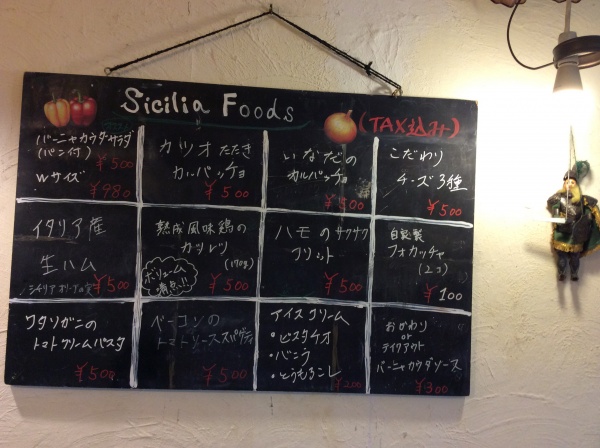 Sicilia Foods
(TAX込み)
バーニャカウダサラダ
(パン付) ¥500
Wサイズ
¥980
カツオたたき
カルパッチョ
¥500
いなだの
カルパッチョ
¥500
こだわり
チーズ3種
¥500
イタリア産
生ハム
シチリアオリーブの実 ¥500
熟成風味鶏の
カツレツ
(170g)
ボリューム
満点!!
¥500
ハモのサクサク
フリット
¥500
自家製
フォカッチャ
(2コ)
¥100
ワタリガニの
トマトクリームパスタ
¥500
ベーコンの
トマトソーススパゲティ
¥500
アイスクリーム
・ピスタチオ
・バニラ
・とうもろこし
¥200
おかわり
or
テイクアウト
バーニャカウダソース
¥300